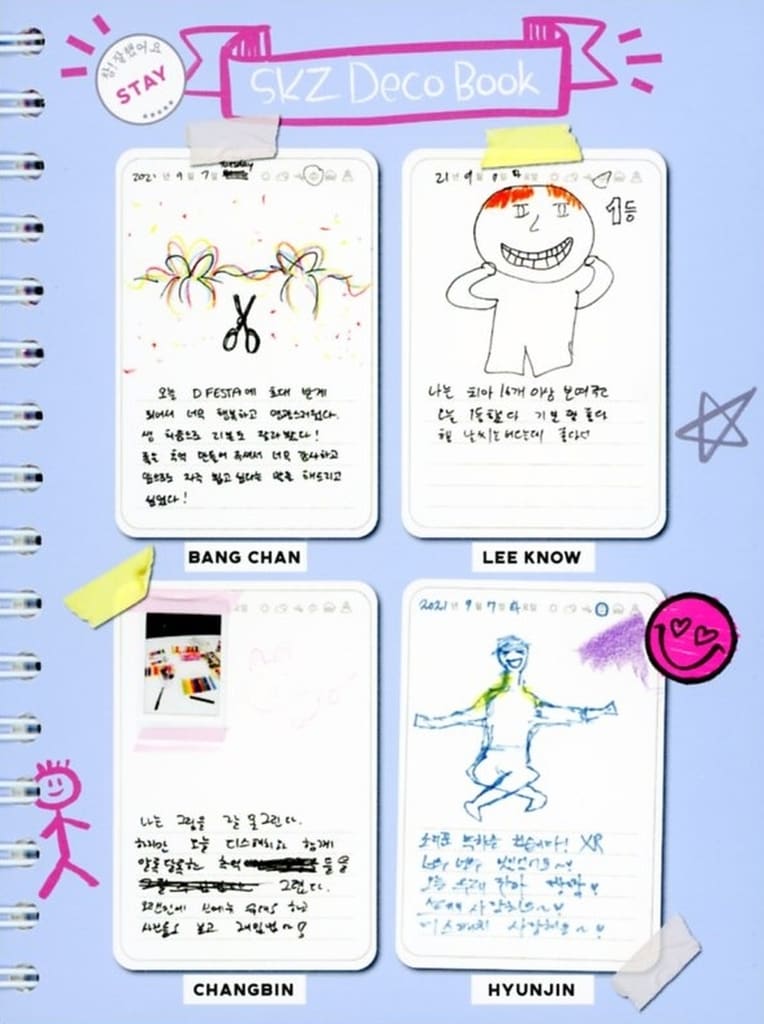 참! 잘했어요
STAY
SKZ Deco Book
2021년 9월 7일
오늘 D FESTA에 초대 받게
되어서 너무 행복하고 영광스러웠다.
생 처음으로 리본도 잘라봤다!
좋은 추억 만들어 주셔서 너무 감사하고
앞으로도 자주 뵙고 싶다는 말을 해드리고
싶었다!
BANG CHAN
21년 9월
1등
나는 치아 16개 이상 보여주고
오늘 1등했다 기분 좋다
햇 날씨는
LEE KNOW
나는 그림을 잘 못 그린다.
하지만 오늘 디스패치와 함께
알록달록한 추억들을
그렸다.
오랜만에
사진들도 보고 재밌었
CHANGBIN
2021년 9월 7일
XR
너무 너무 멋있어요~♥
오늘
사랑해요~♥
디스패치 사랑해요~♥
HYUNJIN